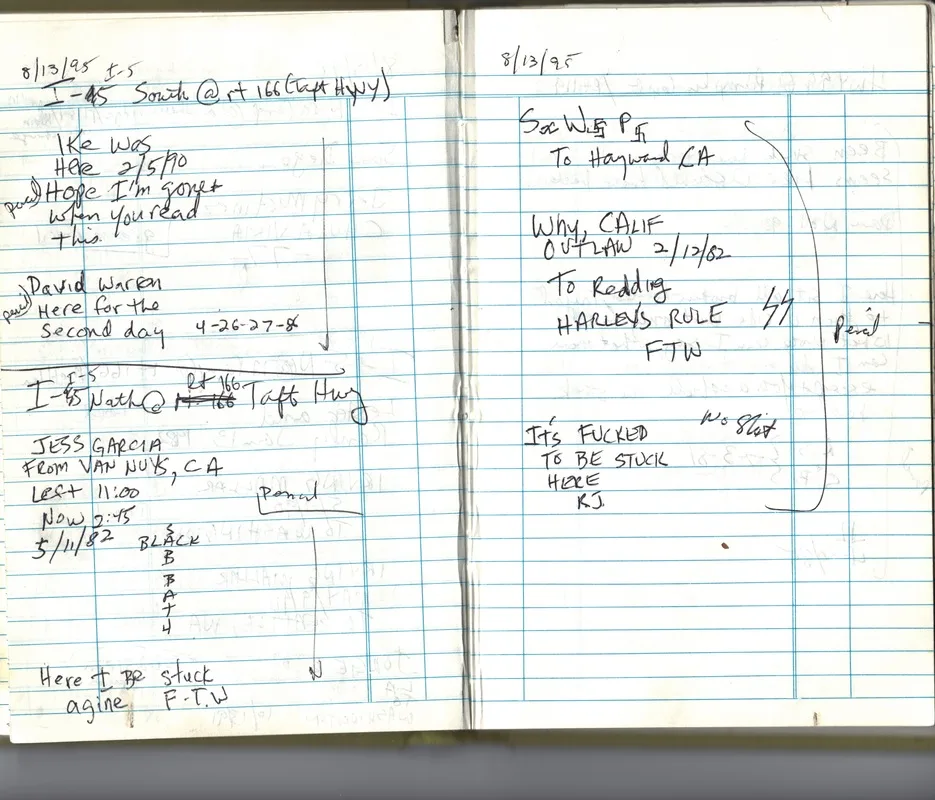 8/13/95 I-5
I-45 South @ rt 166 (Taft Hwy)
IKe was
Here 2/5/90
(pencil) Hope I'm gone
when you read
this.
(pencil) David Warren
Here for the
Second day 4-26-27-8
I-5 Rt 166
I-45 North @ Rt 166 Taft Hwy
JESS GARCIA
FROM VAN NUYS, CA
Left 11:00
Pencil
Now 2:45
5/11/82
S
BLACK
B
B
A
T
4
Here I Be stuck
agine F-T.W
8/13/95
W卐 P卐
To Hayward CA
Why, CALIF
OUTLAW 2/12/82
To Redding
HARLEYS RULE ϟϟ
Pencil
FTW
No Shit
It's FUCKED
TO BE STUCK
HERE
RJ.